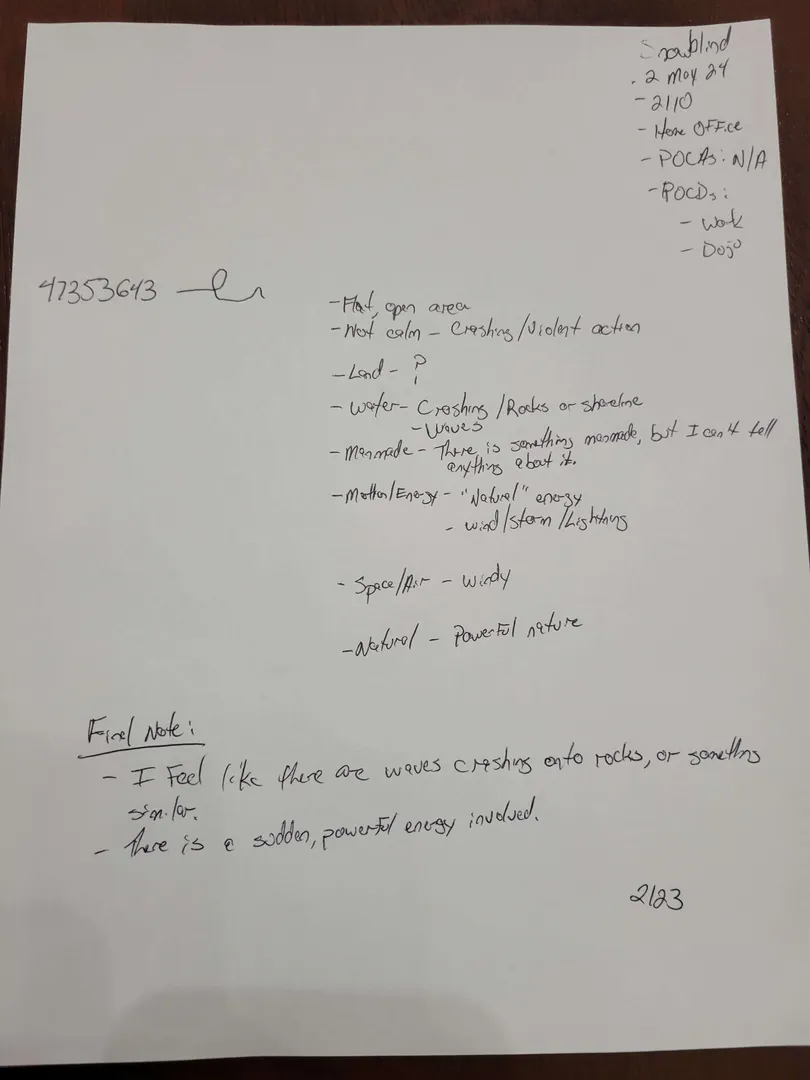 Snowblind
. 2 May 24
- 2110
- Home Office
- POCAs: N/A
- POCDs:
- Work
- Dojo
47353643
- Flat, open area
- Not calm - Crashing/Violent action
- Land - ?
- Water - Crashing/Rocks or shoreline
- Waves
- Manmade - There is something manmade, but I can't tell
anything about it.
- Motion/Energy - "Natural" energy
- wind/storm/Lightning
- Space/Air - Windy
- Natural - Powerful nature
Final Note:
- I Feel like there are waves crashing onto rocks, or something
similar.
- There is a sudden, powerful energy involved.
2123